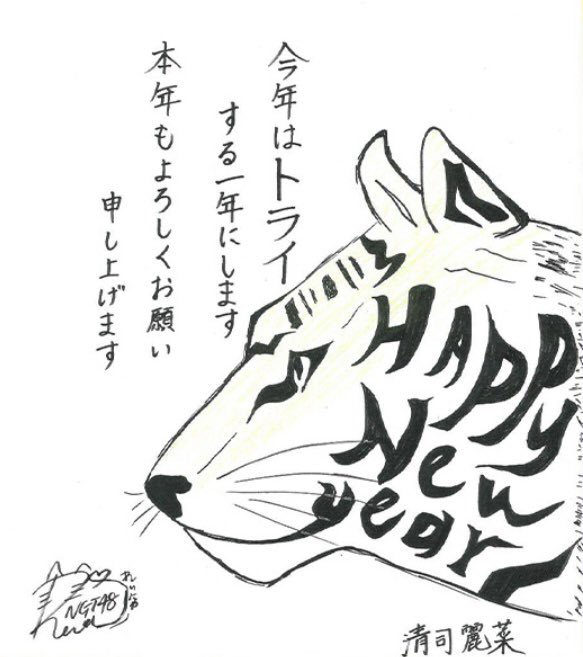 今年はトライ
する一年にします
本年もよろしくお願い
申し上げます
HAPPY
New
year
NGT48
清司麗菜